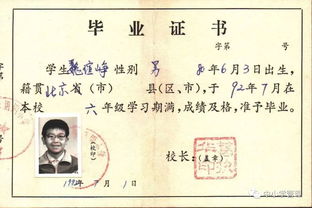 毕业证书
字第 号
学生魏煊峥性别男 80年6月3日出生，
籍贯北京省（市） 县（区、市），于92年7月在
本校 六年级学习期满，成绩及格，准予毕业。
校长： （盖章）
（校印）
1992年7月1日
中小学管理